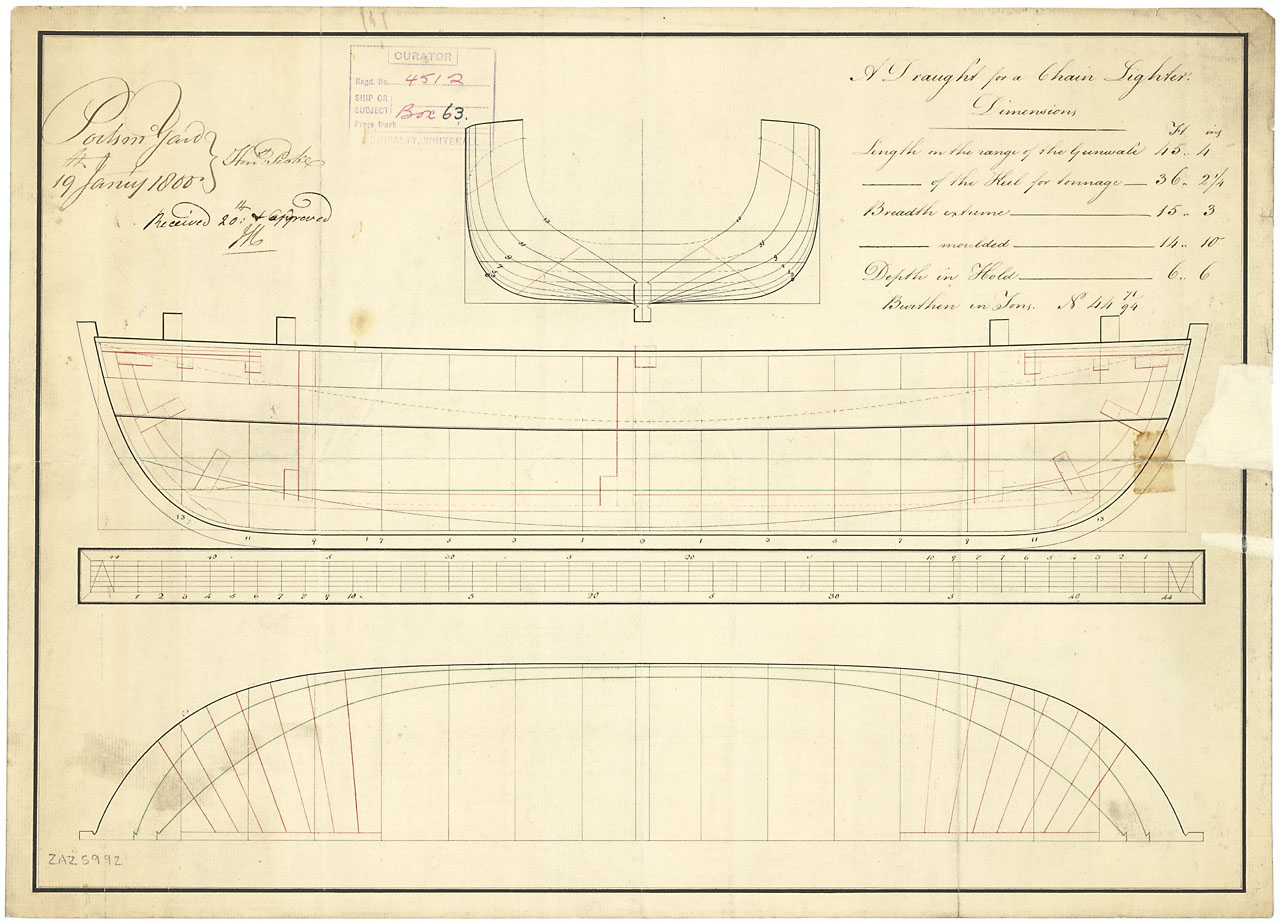 CURATOR
Regd. No. 4512
SHIP OR
SUBJECT Box 63.
Press Mark
ADMIRALTY, WHITEHALL
Portsmo Yard
19th Janry 1800
Received 20th: & approved
JH
A Draught for a Chain Lighter.
Dimensions
Ft ins
Length on the range of the Gunwale 45.. 4
of the Keel for tonnage 36.. 2 1/4
Breadth extreme 15.. 3
moulded 14.. 10
Depth in Hold 6.. 6
Burthen in Tons. No 44 71/94
13 11 9 7 5 3 1 0 1 3 5 7 9 11 13
44 40 5 30 5 20 5 10 9 8 7 6 5 4 3 2 1
1 2 3 4 5 6 7 8 9 10 5 20 5 30 5 40 44
ZAZ5992